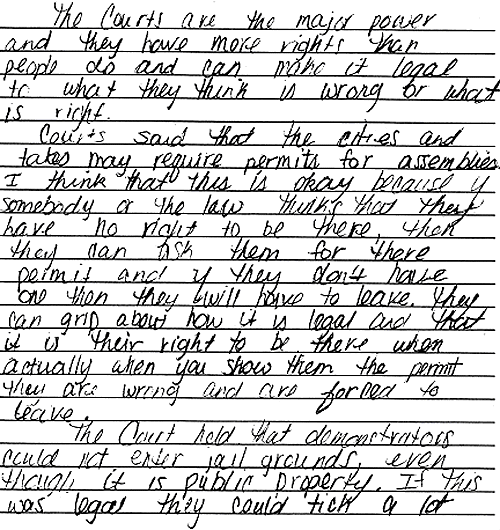 The Courts are the major power
and they have more rights than
people do and can make it legal
to what they think is wrong or what
is right.
Courts said that the cities and
tates may require permits for assemblies.
I think that this is okay because if
somebody or the law thinks that they
have no right to be there, then
they can ask them for there
permit and if they don't have
one then they will have to leave. They
can grip about how it is legal and that
it is their right to be there when
actually when you show them the permit
they are wrong and are forced to
leave.
The Court held that demonstrators
could not enter jail grounds, even
though it is public property. If this
was legal they could tick a lot